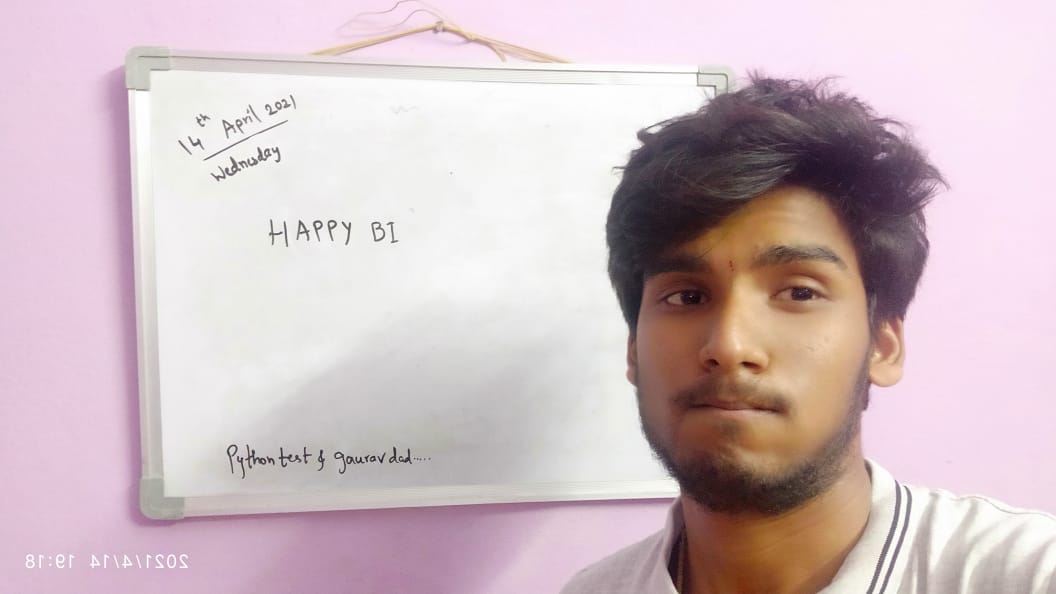 14th April 2021
Wednesday
HAPPY BI
Python test & gaurav dad.....
2021/4/14 19:18